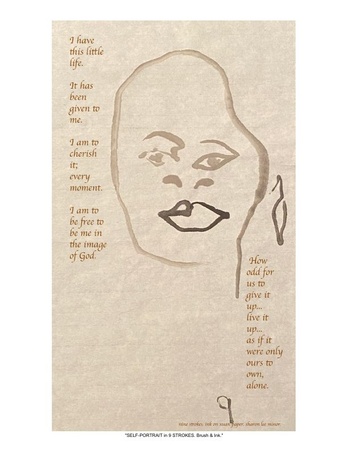 I have
this little
life.
It has
been
given to
me.
I am to
cherish
it;
every
moment.
I am to
be free to
be me in
the image
of God.
How
odd for
us to
give it
up...
live it
up...
as if it
were only
ours to
own,
alone.
9
nine strokes. ink on
"SELF-PORTRAIT in 9 STROKES. Brush & Ink."